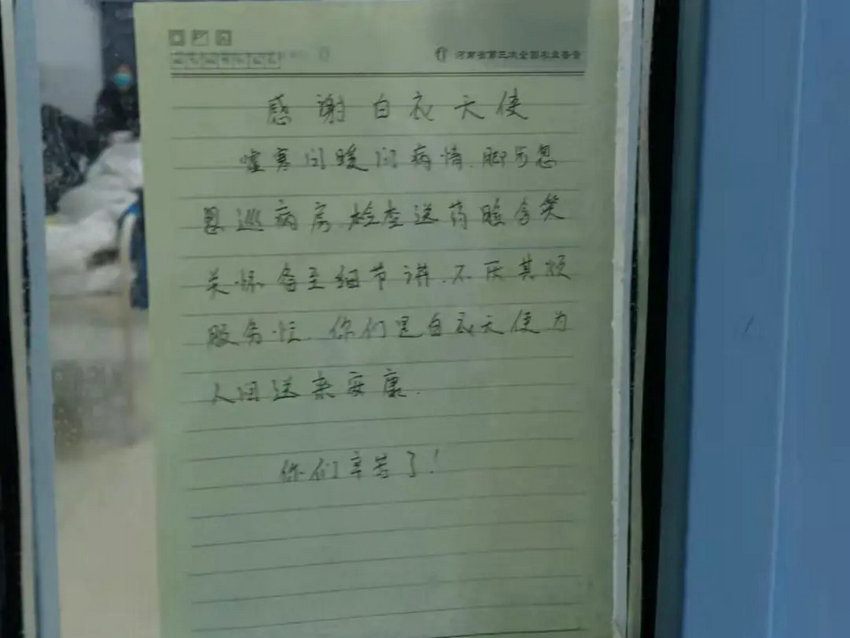 河南省第三次全国农业普查
感谢白衣天使
嘘寒问暖问病情.脚步忽
忽巡病房.检查送药脸含笑
关怀备至细节讲.不厌其烦
服务忙.你们是白衣天使为
人间送来安康.
你们辛苦了!